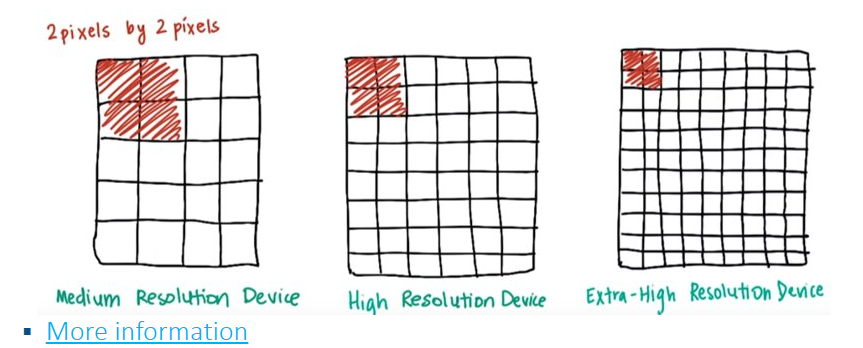 2 pixels by 2 pixels
Medium Resolution Device
High Resolution Device
Extra-High Resolution Device
▪ More information